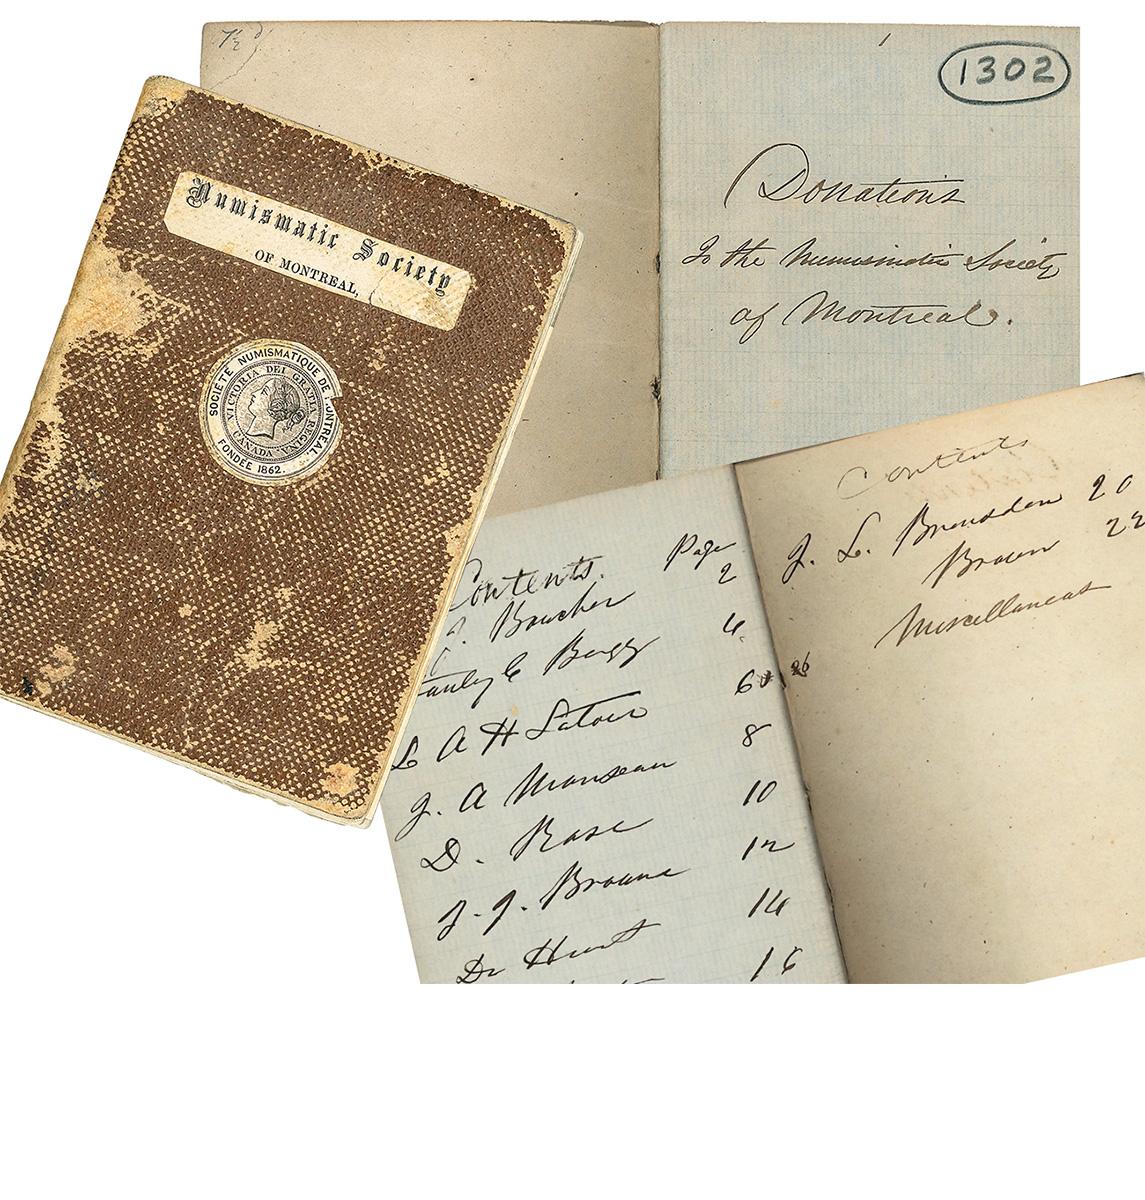 Numismatic Society
OF MONTREAL,
SOCIÉTÉ NUMISMATIQUE DE
FONDÉE 1862.
VICTORIA DEI GRATIA REGINA
CANADA
7½
1
1302
Donations
To the Numismatic Society
of Montreal.
Contents. Page
J. Boucher 2
Stanley C Bagg 4
L A H Latour 6
J. A Manseau 8
D. Rose 10
J. J. Browne 12
Dr Hunt 14
16
Contents
J. L. Bronsdon 20
Brown 22
Miscellaneous
26